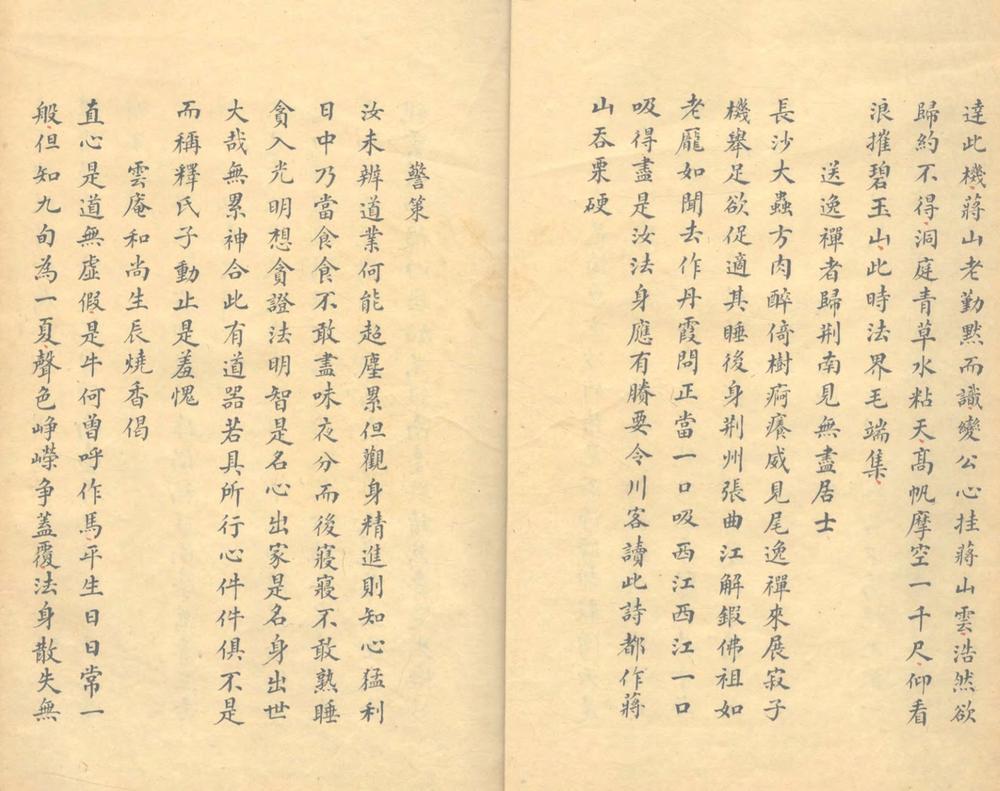 達此機蔣山老勤默而識變公心挂蔣山雲浩然欲
歸約不得洞庭青草水粘天高帆摩空一千尺仰看
浪摧碧玉山此時法界毛端集
送逸禪者歸荆南見無盡居士
長沙大蟲方肉醉倚樹痾癢威見尾逸禪來展寂子
機舉足欲促適其睡後身荆州張曲江解鍜佛祖如
老龐如聞去作丹霞問正當一口吸西江西江一口
吸得盡是汝法身應有賸要令川客讀此詩都作蔣
山吞栗硬
警策
汝未辦道業何能超塵累但觀身精進則知心猛利
日中乃當食食不敢盡味夜分而後寢寢不敢熟睡
貪入光明想貪證法明智是名心出家是名身出世
大哉無累神合此有道器若具所行心件件俱不是
而稱釋氏子動止是羞愧
雲庵和尚生辰燒香偈
直心是道無虛假是牛何曾呼作馬平生日日常一
般但知九旬為一夏聲色崢嶸争蓋覆法身散失無